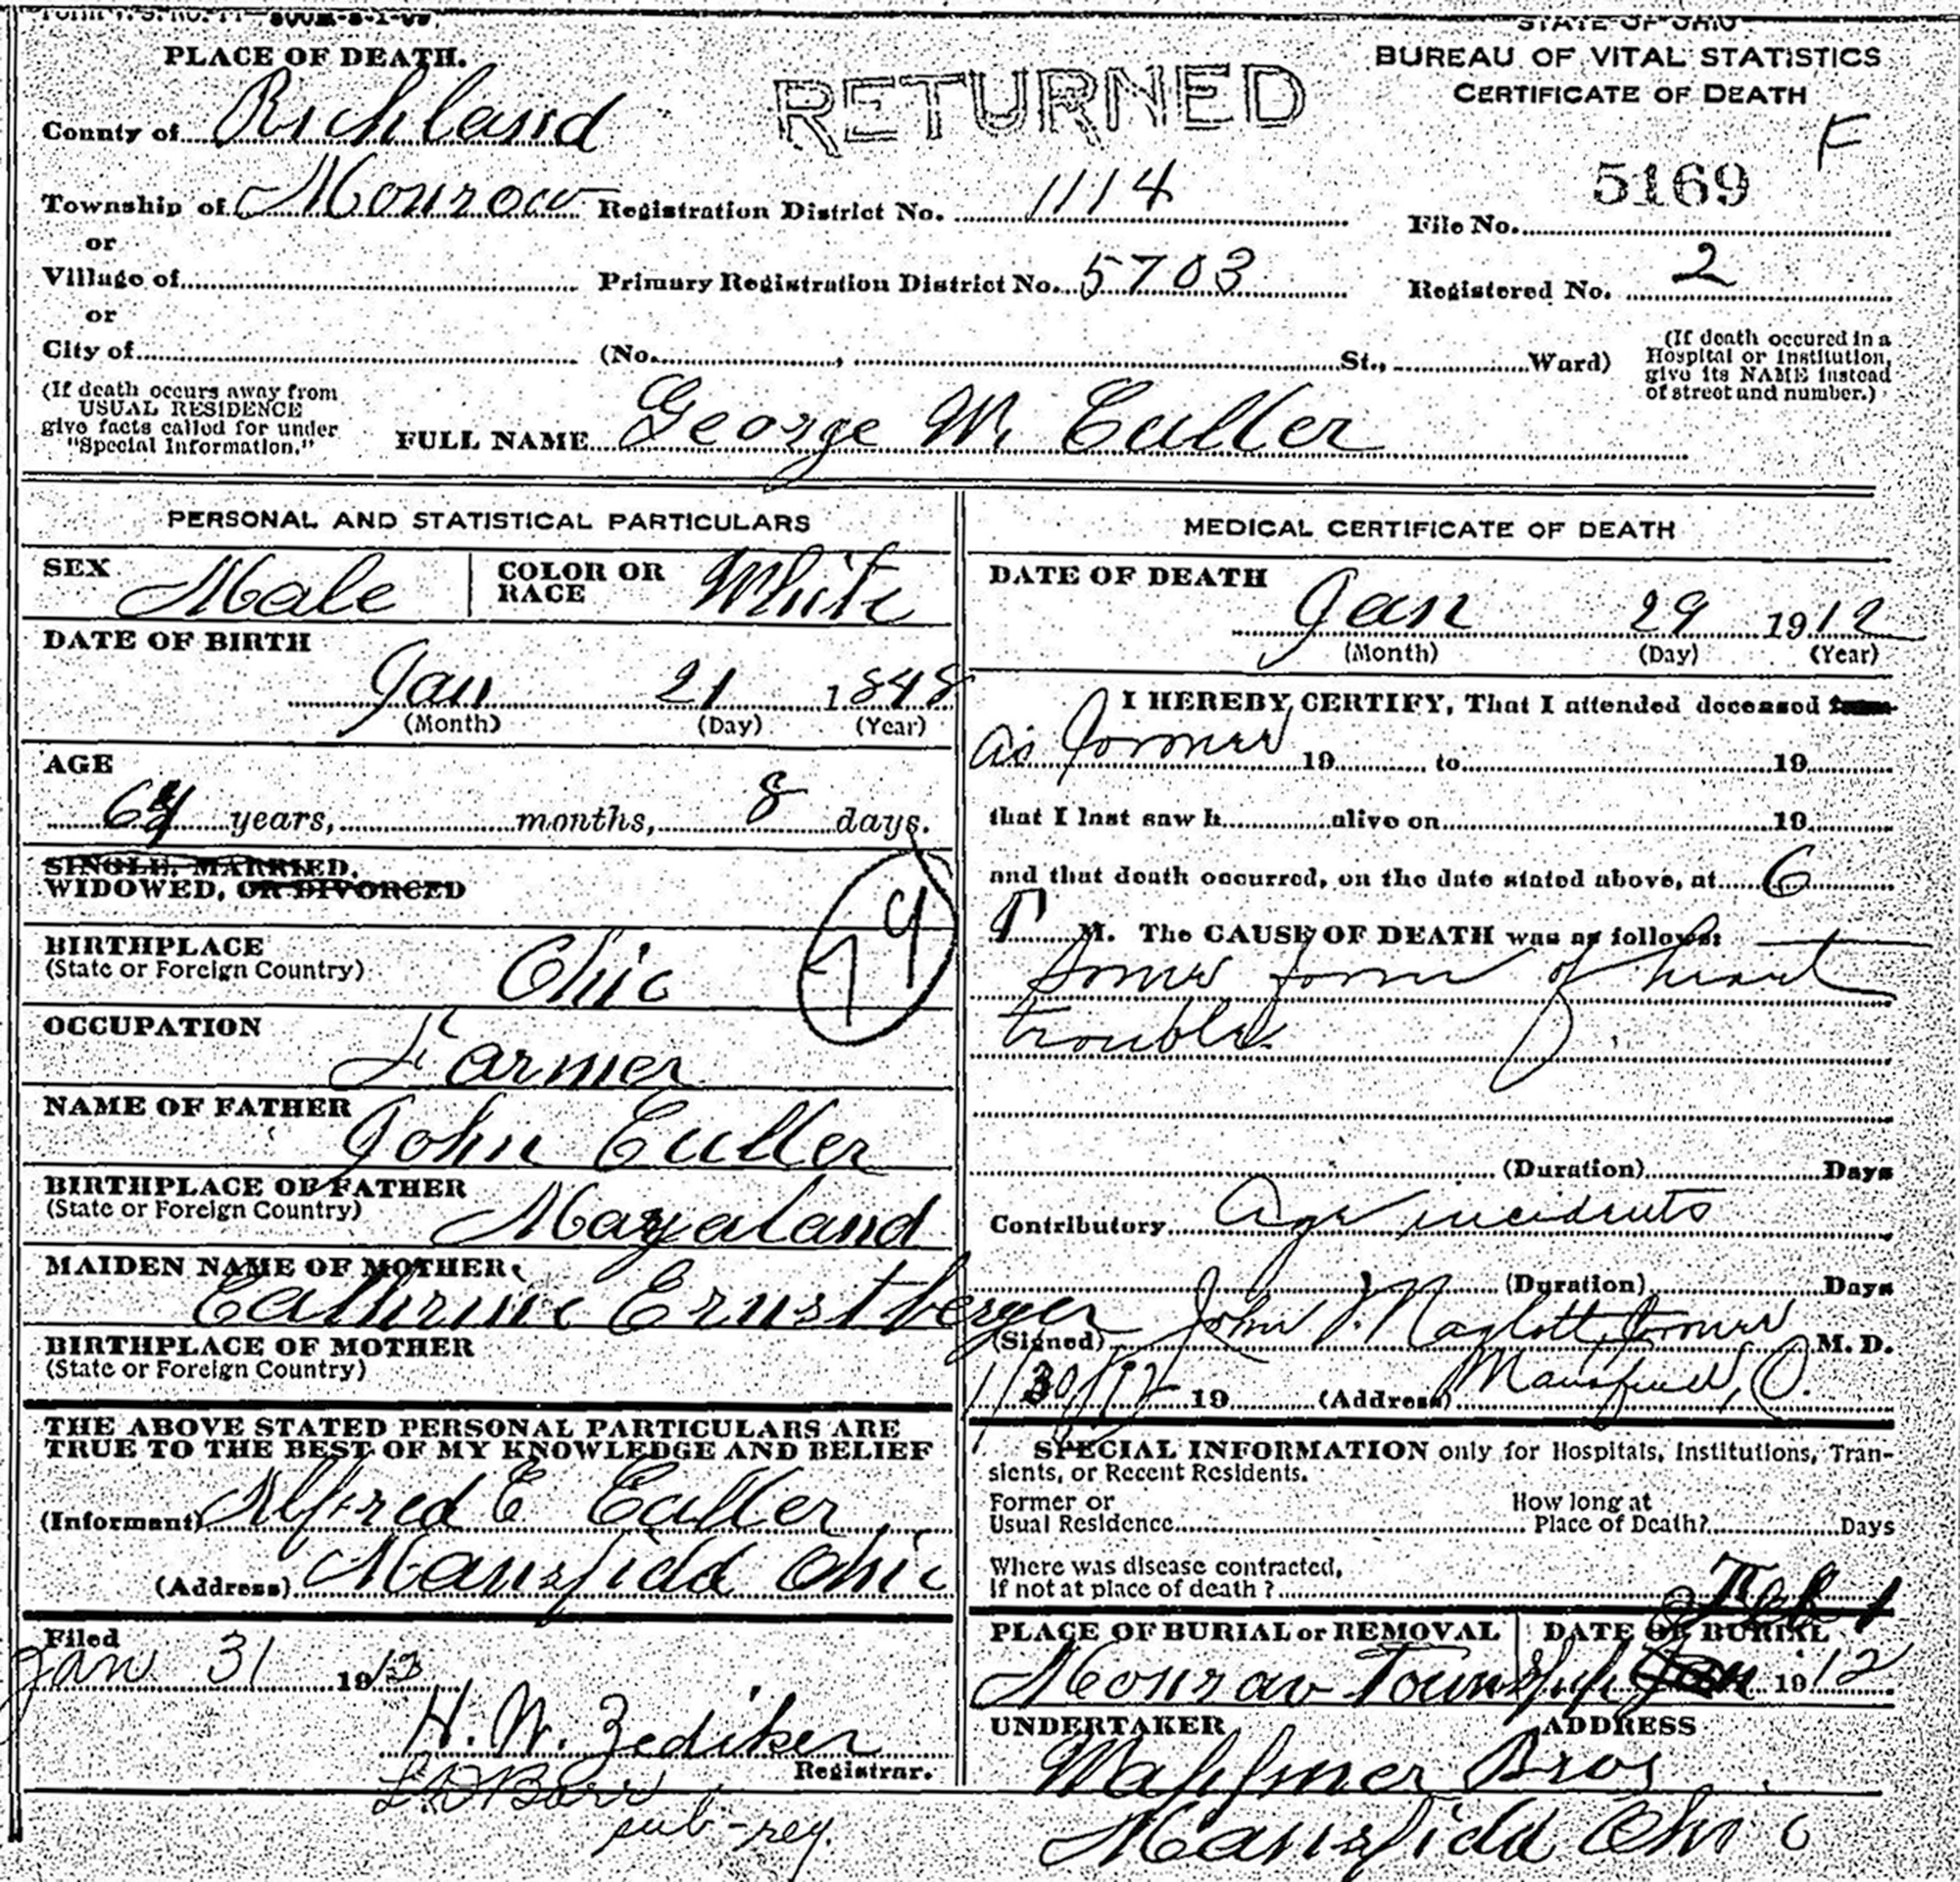 STATE OF OHIO
BUREAU OF VITAL STATISTICS
CERTIFICATE OF DEATH
PLACE OF DEATH.
RETURNED
F
County of Richland
Township of Monrow Registration District No. 1114
File No. 5169
or
Village of Primary Registration District No. 5703
Registered No. 2
or
City of (No. , St., Ward)
(If death occured in a
Hospital or Institution,
give its NAME instead
of street and number.)
(If death occurs away from
USUAL RESIDENCE
give facts called for under
"Special Information."
FULL NAME George W. Culler
PERSONAL AND STATISTICAL PARTICULARS
SEX Male COLOR OR RACE White
DATE OF BIRTH
Jan 21 1848
(Month) (Day) (Year)
AGE
64 years, months, 8 days.
SINGLE, MARRIED,
WIDOWED, OR DIVORCED
79
BIRTHPLACE
(State or Foreign Country) Ohio
OCCUPATION
Farmer
NAME OF FATHER
John Culler
BIRTHPLACE OF FATHER
(State or Foreign Country) Mayaland
MAIDEN NAME OF MOTHER
Cathrine Ernstberger
BIRTHPLACE OF MOTHER
(State or Foreign Country)
THE ABOVE STATED PERSONAL PARTICULARS ARE
TRUE TO THE BEST OF MY KNOWLEDGE AND BELIEF
(Informant) Alfred E Culler
(Address) Mansfield Ohio
Filed
Jan 31 1913
H. W. Zediker
Registrar.
sub-reg.
MEDICAL CERTIFICATE OF DEATH
DATE OF DEATH
Jan 29 1912
(Month) (Day) (Year)
I HEREBY CERTIFY, That I attended deceased from
as Corner 19 to 19
that I last saw h alive on 19
and that death occurred, on the date stated above, at 6
P M. The CAUSE OF DEATH was as follows:
Some form of heart
trouble.
(Duration) Days
Contributory Age incidents
(Duration) Days
(Signed) John Naglott Corner M. D.
1/30/12 19 (Address) Mansfield, O.
SPECIAL INFORMATION only for Hospitals, Institutions, Tran-
sients, or Recent Residents.
Former or
Usual Residence
How long at
Place of Death? Days
Where was disease contracted,
If not at place of death?
Feb 1
PLACE OF BURIAL or REMOVAL DATE OF BURIAL
Monrow Township Jan 1912
UNDERTAKER ADDRESS
Wappner Bros
Mansfield Ohio